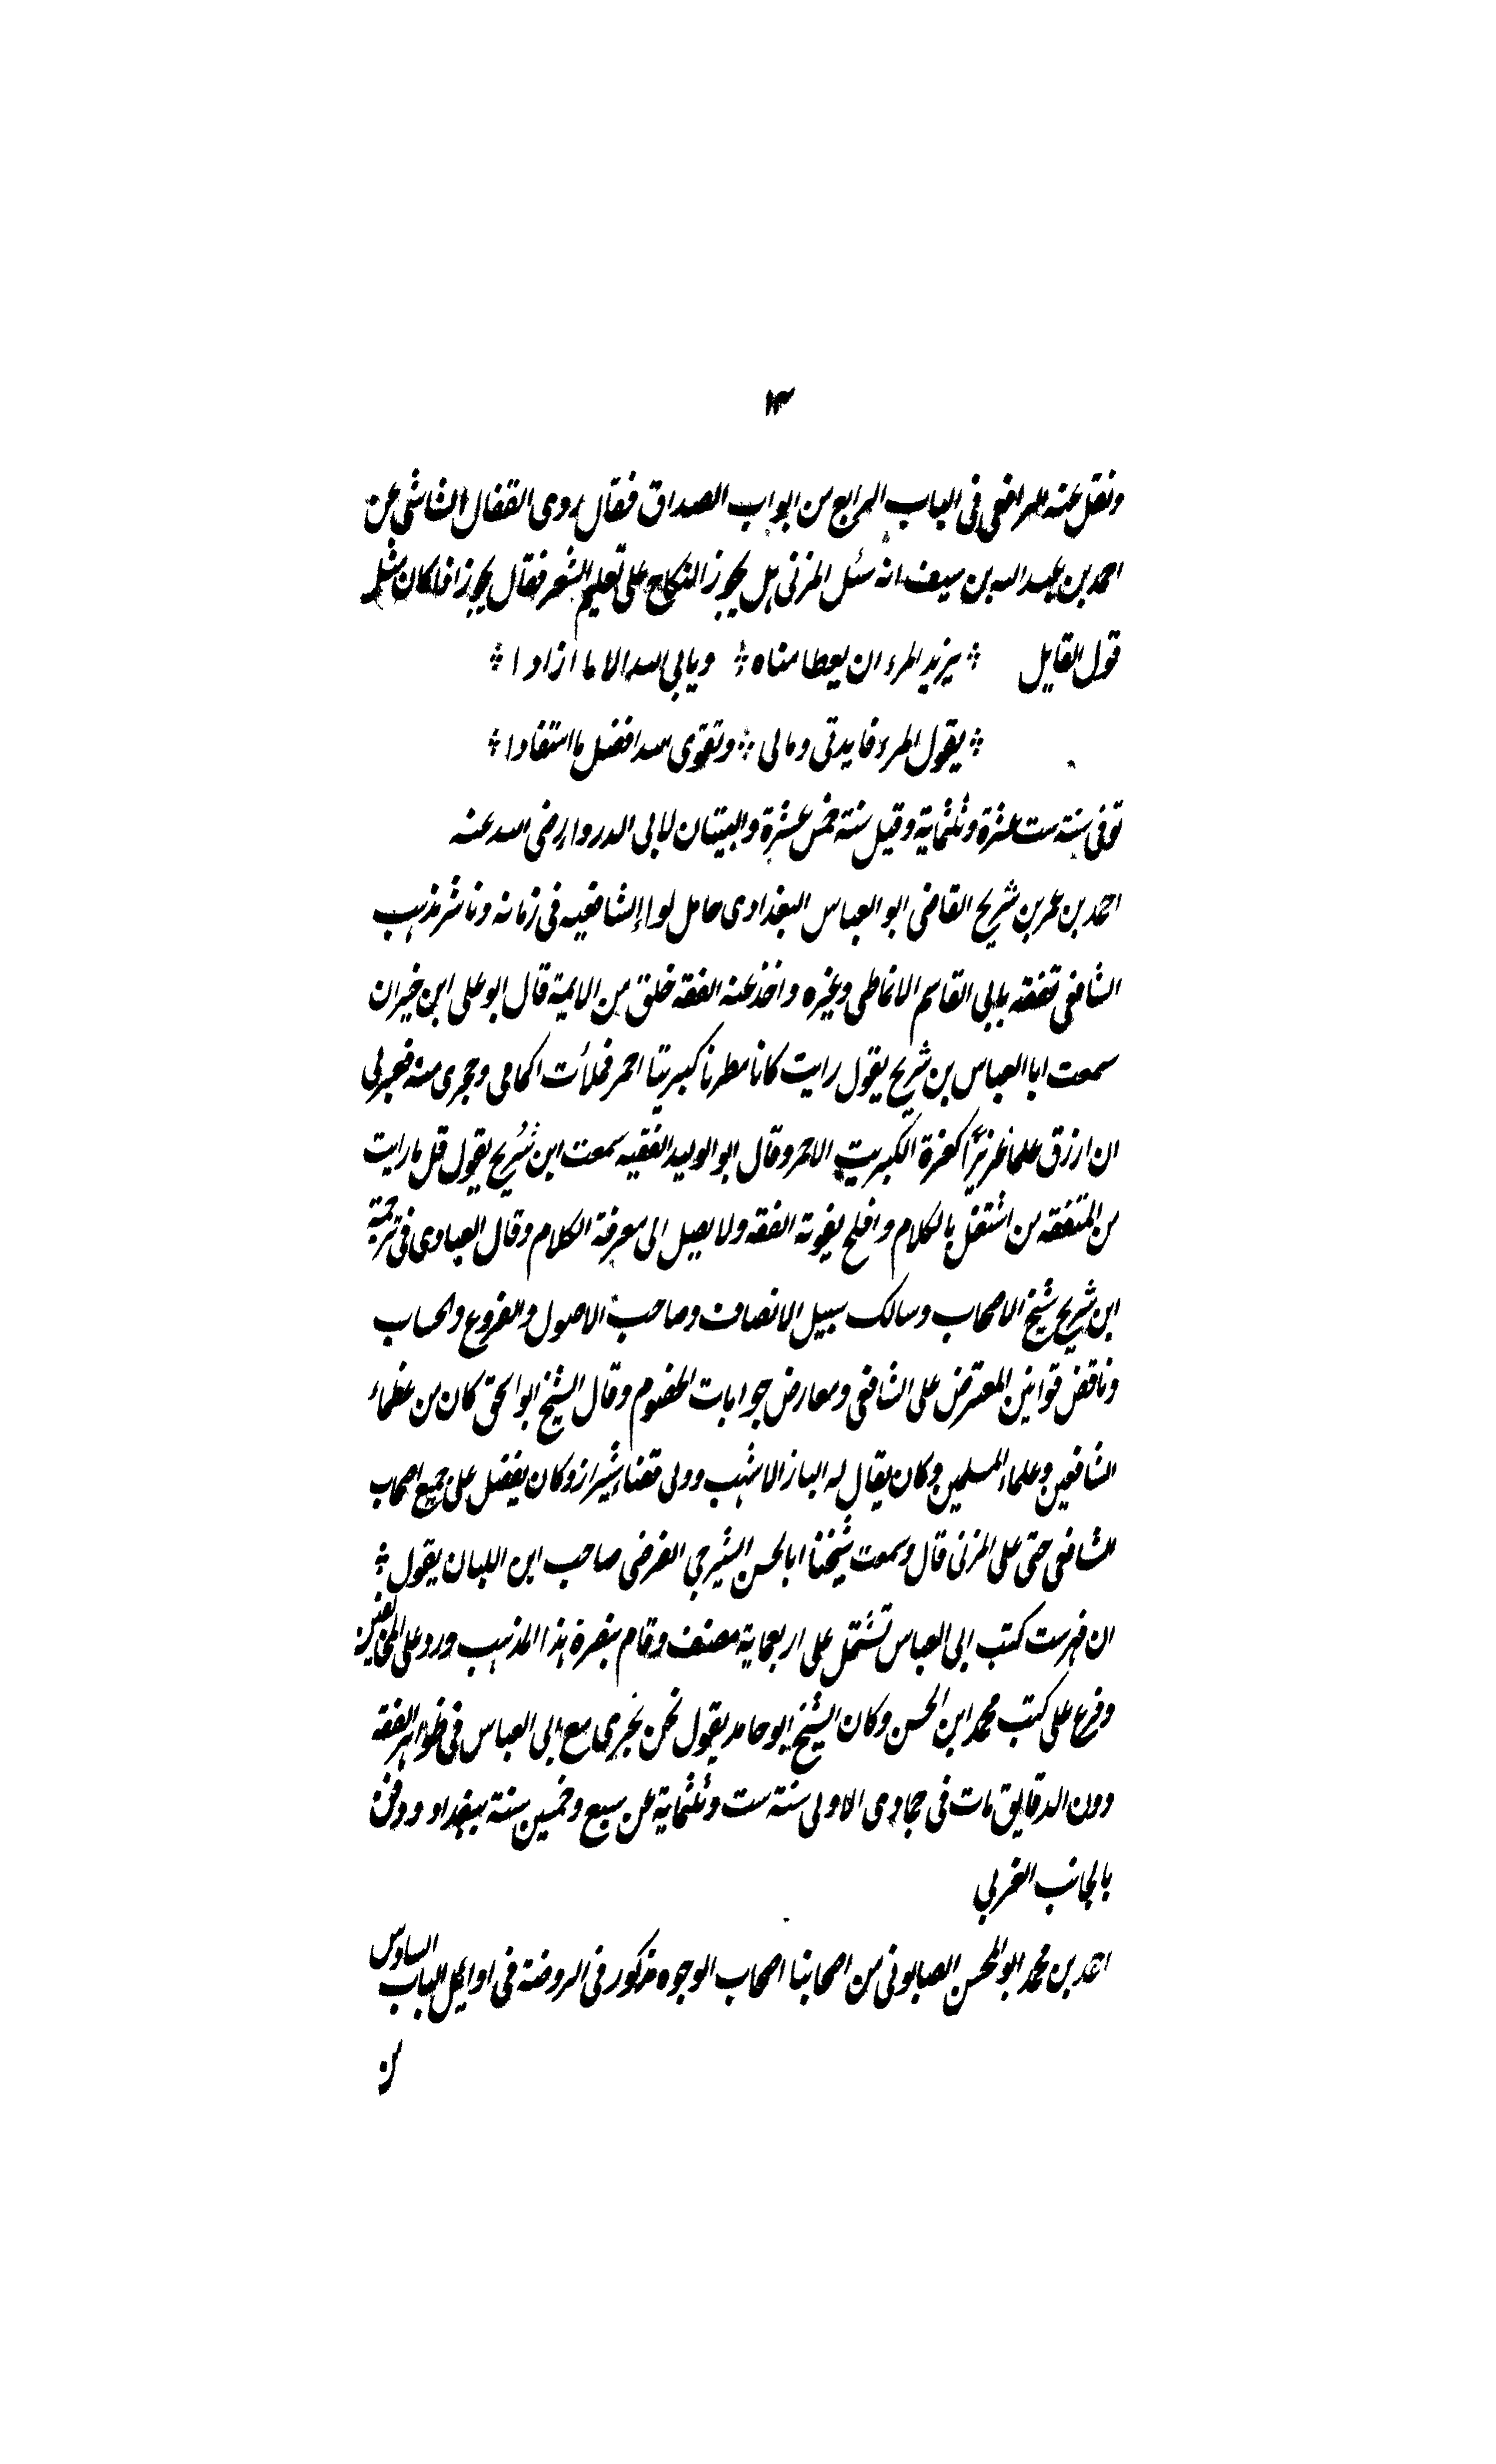 ١٣
ونقل عنه الرافعى فى الباب الرابع من ابواب الصداق فقال روى القفال الشاشى عن
احمد بن عبد الله بن سيف انه سئل المزنى هل يجوز النكاح على تعليم الشعر فقال يجوز اذا كان مثل
قول القايل ÷ يريد المرء ان يعطا مناه ÷ ويابى الله الا ما ارادا ÷
÷ يقول المرء فايدتى ومالى ÷ وتقوى الله افضل ما استفادا ÷
توفى سنة ست عشرة وثلثماية وقيل سنة خمس عشرة والبيتان لابى الدرداء رضى الله عنه
احمد بن عمر بن شريح القاضى ابو العباس البغدادى حامل لواء الشافعيه فى زمانه وناشر مذهب
الشافعى تفقه بابى القاسم الانماطى وغيره واخذ عنه الفقه خلق من الايمة قال ابو على ابن خيران
سمعت ابا العباس بن شريح يقول رايت كانا مطرنا كبريتا احمر فملأت اكمامى وحجرى منه فعبر لى
ان ارزق علما عزيزًا كعزة الكبريت الاحمر وقال ابو الوليد الفقيه سمعت ابن شريح يقول قل ما رايت
من المتفقه من اشتغل بالكلام وافلح يفوته الفقه ولا يصل الى معرفة الكلام وقال العبادى فى ترجمة
ابن شريح شيخ الاصحاب وسالك سبيل الانصاف وصاحب الاصول والفروع والحساب
وناقض قوانين المعترض على الشافعى ومعارض جوابات الخصوم وقال الشيخ ابو اسحق كان من عظماء
الشافعيين وعلماء المسلمين وكان يقال له الباز الاشهب وولى قضاء شيراز وكان يفضل على جميع اصحاب
الشافعى حتى على المزنى قال وسمعت شيخنا ابا الحسن الشيرجى الفرضى صاحب ابن اللبان يقول ÷
ان فهرست كتب ابى العباس تشتمل على اربعماية مصنف وقام بنصرة هذا المذهب ورد على المخالفين
وفرع على كتب محمد ابن الحسن وكان الشيخ ابو حامد يقول نحن نجرى مع ابى العباس فى ظواهر الفقه
دون الدقايق مات فى جمادى الاولى سنة ست وثلثماية عن سبع وخمسين سنة ببغداد ودفن
بالجانب الغربى
احمد بن محمد ابو الحسن الصابونى من اصحابنا اصحاب الوجوه مذكور فى الروضة فى اوايل الباب السادس
من